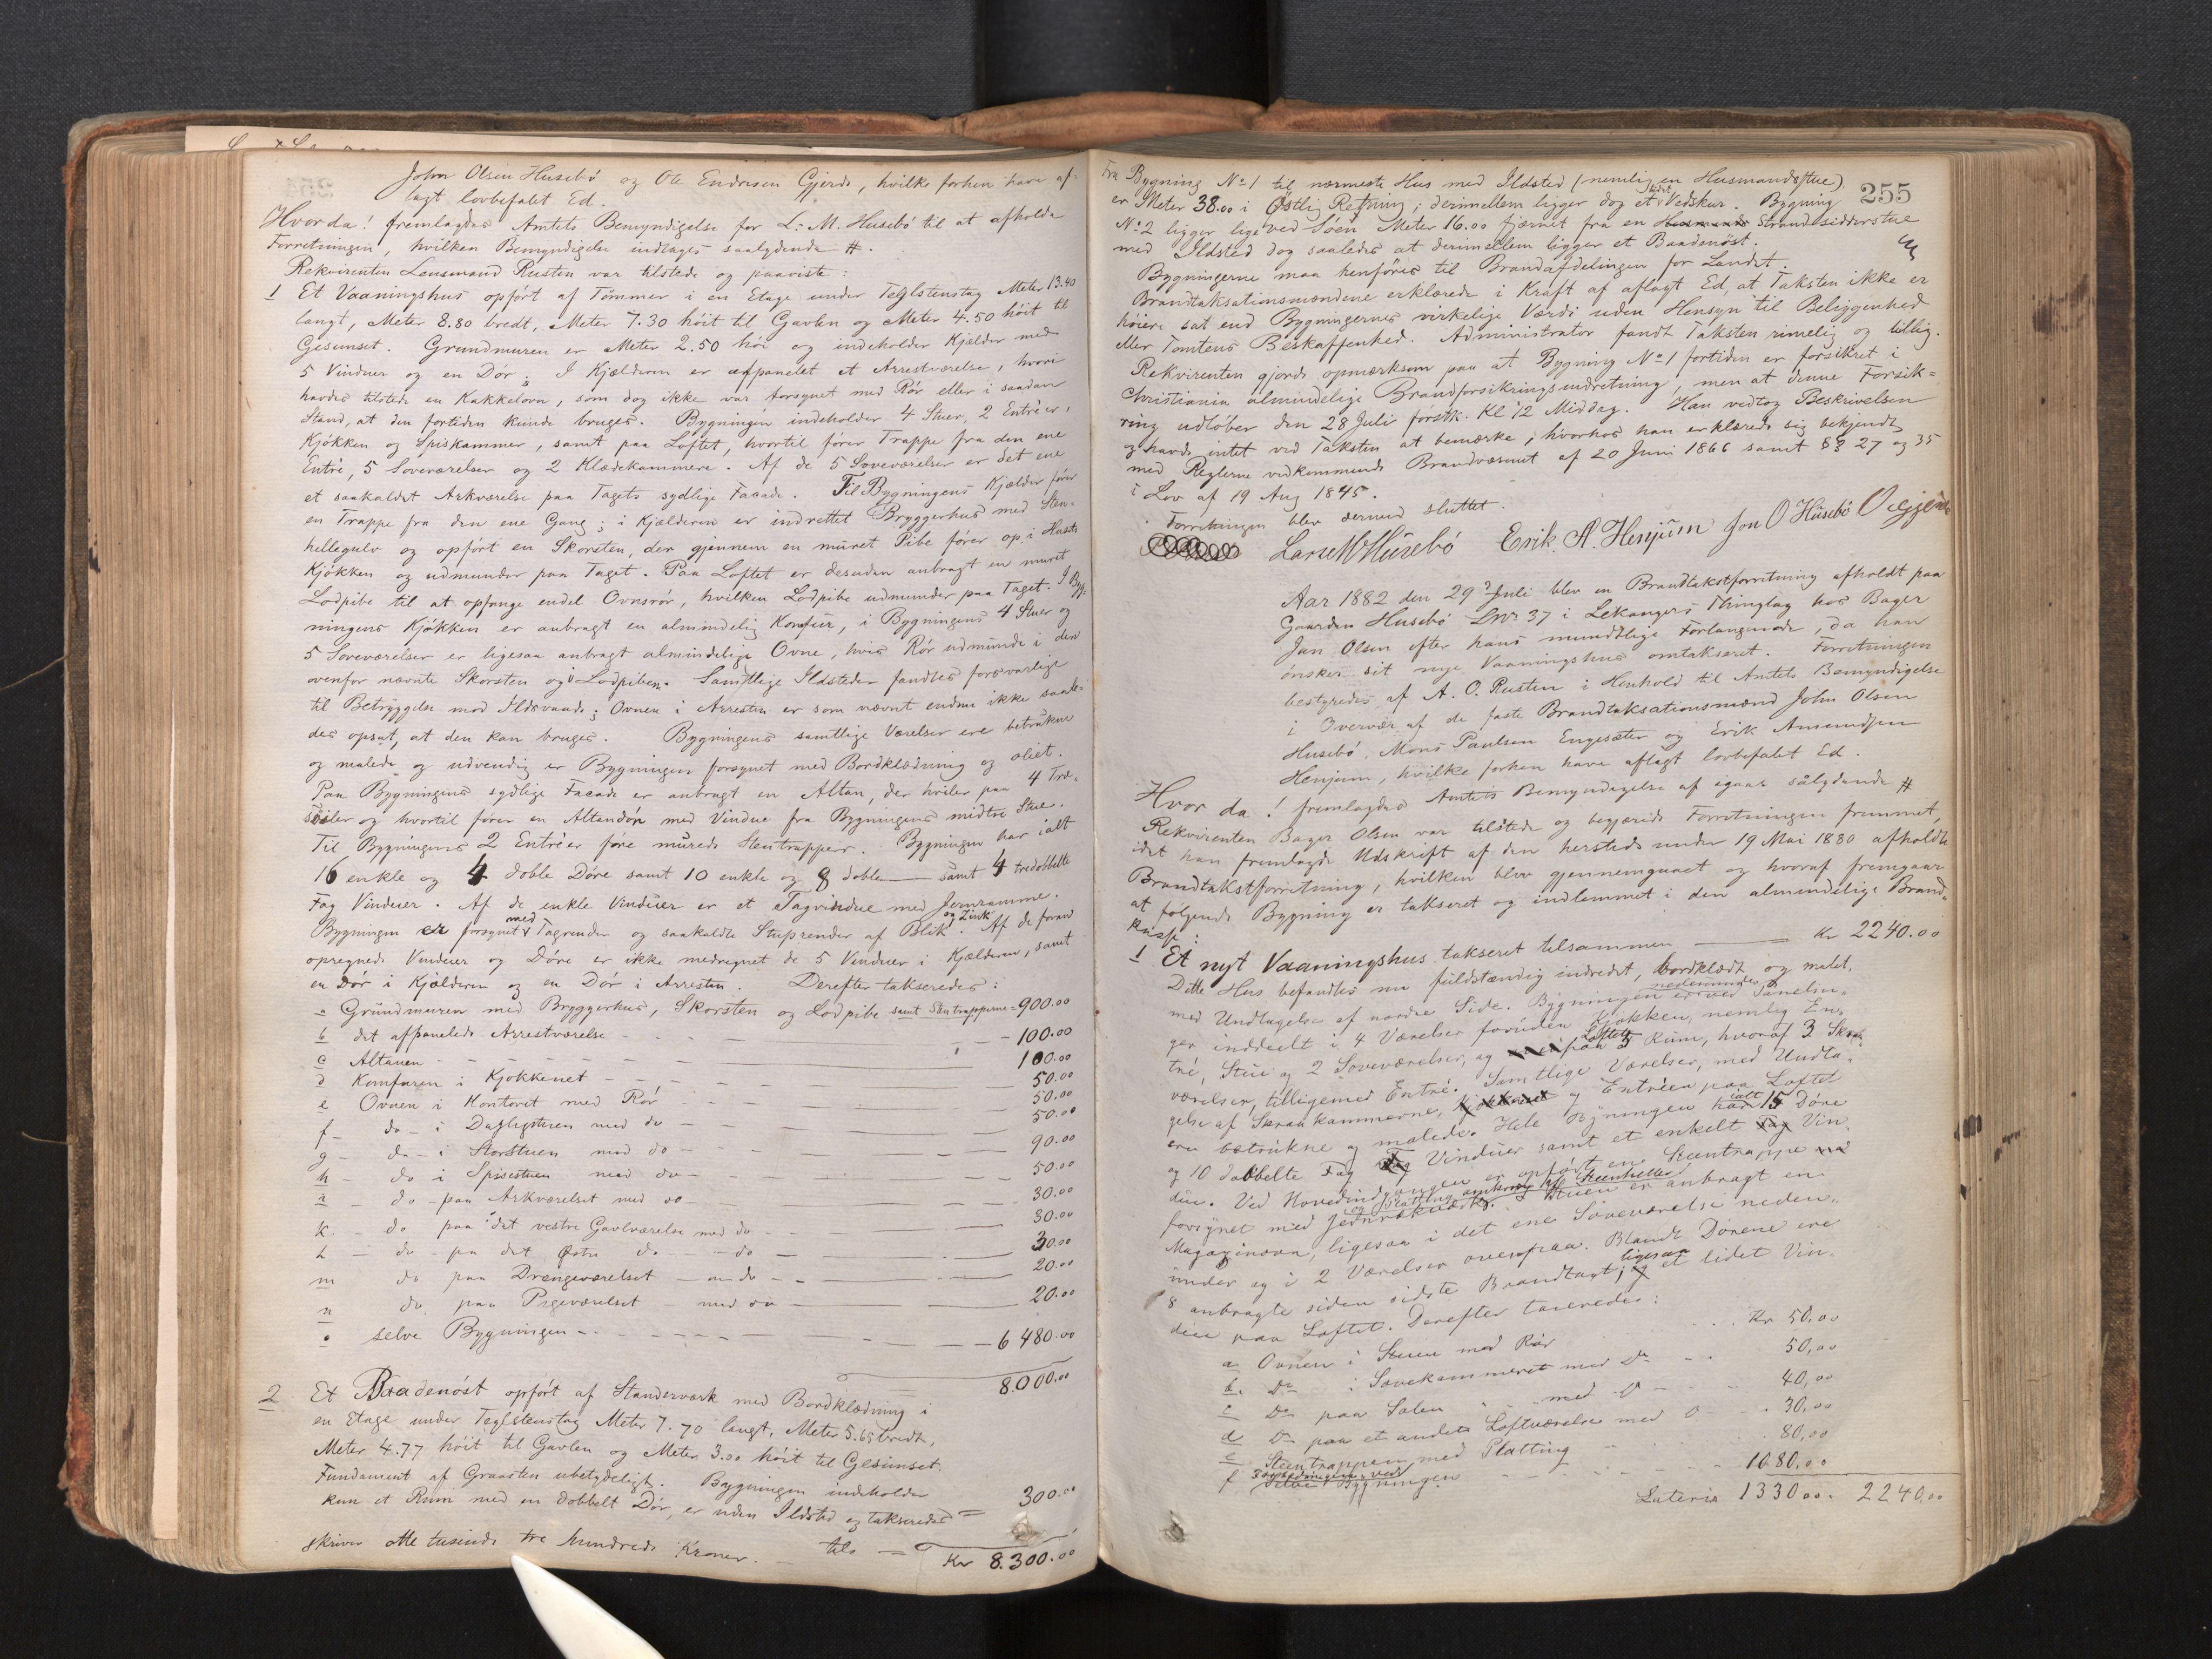 John Olsen Husebö og Ole Endresen Gjerde, hvilke forhen have af-
lagt lovbefalet Ed.
Hvor da! fremlagdes Amtets Bemyndigelse for L. M. Husebö til at afholde
Forretningen, hvilken Bemyndigelse indtages saalydende #.
Rekvirenten Lensmand Rusten var tilstede og paaviste:
1 Et Vaaningshus opfört af Tömmer i en Etage under Teglstenstag Meter 13.40
langt, Meter 8.80 bredt, Meter 7.30 höit til Gavlen og Meter 4.50 höit til
Gesimset. Grundmuren er Meter 2.50 höi og indeholder Kjælder med
5 Vinduer og en Dör; I Kjælderen er afpanelet et Arrestværelse, hvori
havdes tilstede en Kakkelovn, som dog ikke var forsynet med Rör eller i saadan
Stand, at den fortiden kunde bruges. Bygningen indeholder 4 Stuer, 2 Entréer,
Kjökken og Spiskammer, samt paa Loftet, hvortil förer Trappe fra den ene
Entré, 5 Soveværelser og 2 Klædekammere. Af de 5 Soveværelser er det ene
et saakaldet Arkværelse paa Tagets sydlige Facade. Til Bygningens Kjælder förer
en Trappe fra den ene Gang; i Kjælderen er indrettet Bryggerhus med Sten-
hellegulv og opfört en Skorsten, der gjennem en muret Pibe förer op i Husets
Kjökken og udmunder paa Taget. Paa Loftet er desuden anbragt en muret
Lodpibe til at opfange endel Ovnsrör, hvilken Lodpibe udmunder paa Taget. I Byg-
ningens Kjökken er anbragt en almindelig Komfur, i Bygningens 4 Stuer og
5 Soveværelser er ligesaa anbragt almindelige Ovne, hvis Rör udmunde i den
ovenfor nævnte Skorsten og i Lodpiben. Samtlige Ildsteder fandtes forsvarlige
til Betryggelse mod Ildsvaade; Ovnen i Arresten er som nævnt endnu ikke saale-
des opsat, at den kan bruges. Bygningens samtlige Værelser ere betrukne
og malede og udvendig er Bygningen forsynet med Bordklædning og oliet.
Paa Bygningens sydlige Facade er anbragt en Altan, der hviler paa 4 Træ-
söiler og hvortil förer en Altandör med Vindue fra Bygningens midtre Stue.
Til Bygningens 2 Entréer före murede Stentrapper. Bygningen har ialt
16 enkle og 4 doble Döre samt 10 enkle og 8 doble samt 4 tredobbelte
Fag Vinduer. Af de enkle Vinduer er et Tagvindue med Jernramme.
Bygningen er forsynet med Tagrender og saakaldte Stuprender af Blik og Zink. Af de foran
opregnede Vinduer og Döre er ikke medregnet de 5 Vinduer i Kjælderen, samt
en Dör i Kjælderen og en Dör i Arresten. Derefter takseredes:
a Grundmuren med Bryggerhus, Skorsten og Lodpibe samt Stentrapperne = 900.00
b det afpanelede Arrestværelse - - - 100.00
c Altanen - - - 100.00
d Komfuren i Kjökkenet - - - 50.00
e Ovnen i Kontoret med Rör - - - 50.00
f - do - i Dagligstuen med do - - 50.00
g - do - i Storstuen med do - - 90.00
h - do i Spisestuen med do - - 50.00
i - do - paa Arkværelset med do - 30.00
k - do paa det vestre Gavlværelse med do - - 30.00
l - do - pa det Östre do - - do - 30.00
m do paa Drengeværelset - m do - - 20.00
n do paa Pigeværelset - med do - 20.00
o selve Bygningen - - - 6480.00
8.000.00
2 Et Baadenöst opfört af Standerværk med Bordklædning i
en Etage under Teglstenstag Meter 7.70 langt, Meter 5.65 bredt,
Meter 4.77 höit til Gavlen og Meter 3.00 höit til Gesimset.
Fundament af Graasten ubetydeligt. Bygningen indeholder
kun et Rum med en dobbelt Dör, er uden Ildsted og takseredes = 300.00
skriver otte tusinde tre hundrede Kroner. - tils = Kr 8.300.00
255
Fra Bygning No 1 til nærmeste Hus med Ildsted (nemlig en Husmandsstue)
er Meter 38.00 i Östlig Retning; derimellem ligger dog et lidet Vedskur. Bygning
No 2 ligger lige ved Söen Meter 16.00 fjærnet fra en Strandsidderstue
med Ildsted dog saaledes at derimellem ligger et Baadenöst.
Bygningerne maa henföres til Brandafdelingen for Landet.
Brandtaksationsmændene erklærede i Kraft af aflagt Ed, at Taksten ikke er
höiere sat end Bygningernes virkelige Værdi uden Hensyn til Beliggenhed
eller Tomtens Beskaffenhed. Administrator fandt Taksten rimelig og billig.
Rekvirenten gjorde opmærksom paa at Bygning No 1 fortiden er forsikret i
Christiania almindelige Brandforsikringsindretning, men at denne Forsik-
ring udlöber den 28 Juli förstk. Kl 12 Middag. Han vedtog Beskrivelsen
og havde intet ved Taksten at bemærke, hvorhos han erklærede sig bekjendt
med Reglerne vedkommende Brandvæsenet af 20 Juni 1866 samt §§ 27 og 35
i Lov af 19 Aug 1845.
Forretningen blev dermed sluttet.
Lars M Husebö Erik. A. Henjum Jon O Husebö O e gjerde
Aar 1882 den 29 Juli blev en Brandtakstforretning afholdt paa
Gaarden Husebö Lnr 37 i Lekangers Thinglag hos Bager
Jan Olsen efter hans mundtlige Forlangende, da han
önsker sit nye Vaaningshus omtakseret. Forretningen
bestyredes af A. O. Rusten i Henhold til Amtets Bemyndigelse
i Overvær af de faste Brandtaksationsmænd John Olsen
Husebö, Mons Paulsen Engesæter og Erik Amundsen
Henjum, hvilke forhen have aflagt lovbefalet Ed.
Hvor da! fremlagdes Amtets Bemyndigelse af igaar sålydende #
Rekvirenten Bager Olsen var tilstede og begjærede Forretningen fremmet,
idet han fremlagde Udskrift af den hersteds under 19 Mai 1880 afholdte
Brandtakstforretning, hvilken blev gjennemgaaet og hvoraf fremgaar
at fölgende Bygning er takseret og indlemmet i den almindelige Brand-
kasse:
1 Et nyt Vaaningshus takseret tilsammen Kr 2240.00
Dette Hus befandtes nu fuldstændig indredet, bordklædt og malet,
med Undtagelse af nordre Side. Bygningen er nedenunder ved Panelin-
ger inddeelt i 4 Værelser foruden Kjökken, nemlig En-
tré, Stue og 2 Soveværelser, og paa Loftet 5 Rum, hvoraf 3 Skraa
værelser, tilligemed Entré. Samtlige Værelser, med Undta-
gelse af Skraakammerne, og Entréen paa Loftet
ere betrukne og malede. Hele Bygningen har ialt 15 Döre
og 10 dobbelte Fag Vinduer samt et enkelt Vin-
due. Ved Hovedindgangen er opfört en Steentrappe
og Platting af Steenheller
forsynet med Jernrækværk. I Stuen er anbragt en
Magazinovn, ligesaa i det ene Soveværelse neden-
under og i 2 Værelser ovenpaa. Blandt Dörene ere
8 anbragte siden sidste Brandtaxt, ligesaa et lidet Vin-
due paa Loftet. Derefter taxeredes:
a Ovnen i Stuen med Rör . . Kr 50,00
b. Do i Sovekammeret med Do - - 50,00
c Do paa Salen med Do - - 40,00
d Do paa et andet Loftværelse med Do - 30,00
e Steentrappen med Platting - - 80,00
f ved Bygningen - - 1080,00
Lateris 1330.00. 2240,00